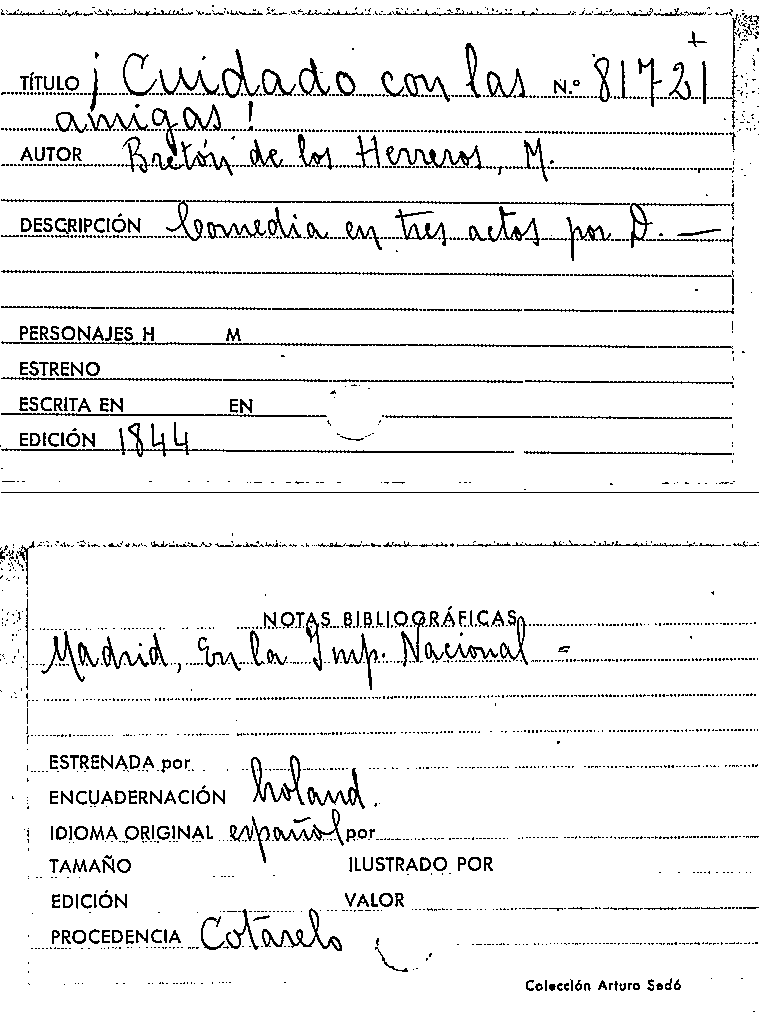 TÍTULO ¡Cuidado con las N.º 81721
amigas!
AUTOR Bretón de los Herreros, M.
DESCRIPCIÓN Comedia en tres actos por D. —
PERSONAJES H M
ESTRENO
ESCRITA EN EN
EDICIÓN 1844
NOTAS BIBLIOGRÁFICAS
Madrid, En la Imp. Nacional =
ESTRENADA por
ENCUADERNACIÓN holand.
IDIOMA ORIGINAL español por
TAMAÑO ILUSTRADO POR
EDICIÓN VALOR
PROCEDENCIA Cotarelo
Colección Arturo Sedó